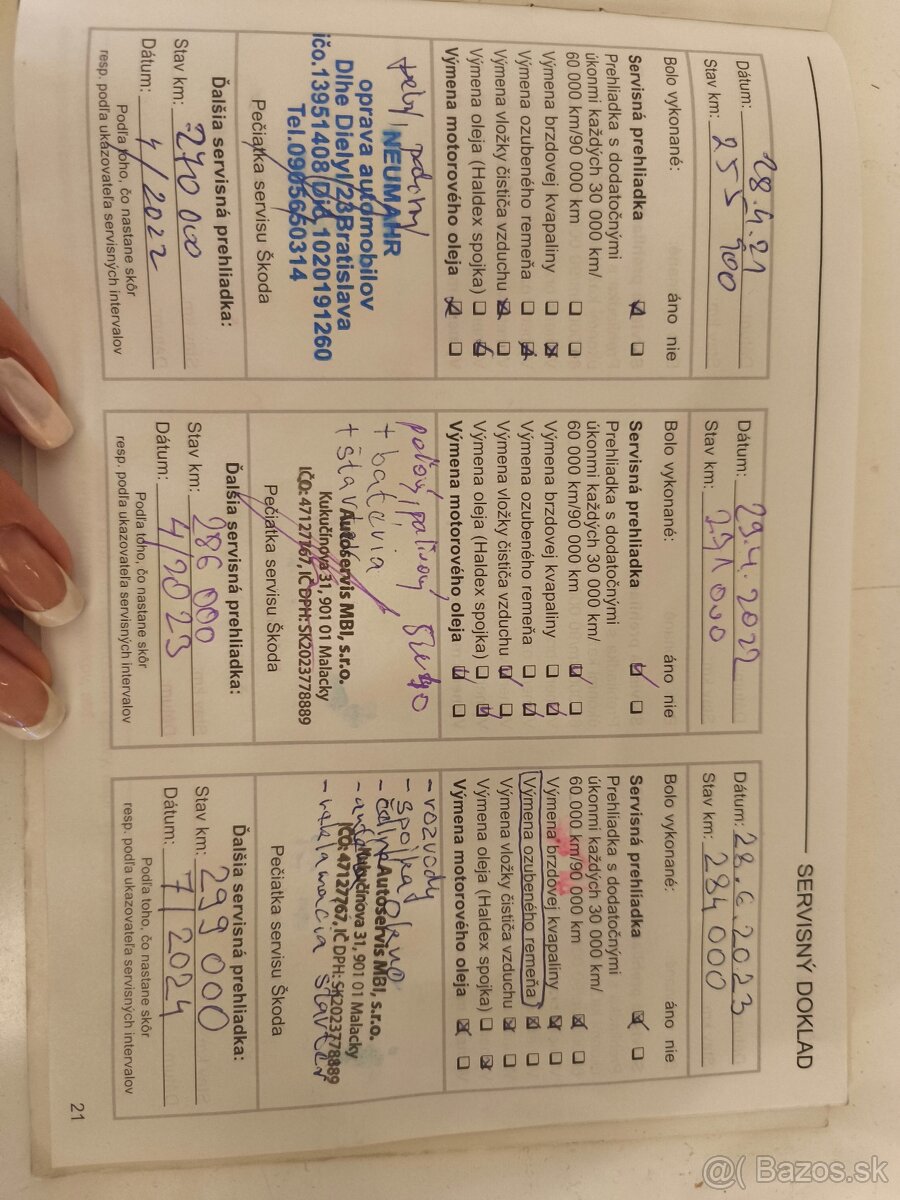 SERVISNÝ DOKLAD
Dátum: 28.4.21
Stav km: 255 900
Bolo vykonané: áno nie
Servisná prehliadka
Prehliadka s dodatočnými
úkonmi každých 30 000 km/
60 000 km/90 000 km
Výmena brzdovej kvapaliny
Výmena ozubeného remeňa
Výmena vložky čističa vzduchu
Výmena oleja (Haldex spojka)
Výmena motorového oleja
NEUMAHR
oprava automobilov
Dlhe Diely I/23 Bratislava
ičo.13951408 Dič.1020191260
Tel.0905650314
Pečiatka servisu Škoda
Ďalšia servisná prehliadka:
Stav km: 270 000
Dátum: 4/2022
Podľa toho, čo nastane skôr
resp. podľa ukazovateľa servisných intervalov
Dátum: 29.4.2022
Stav km: 271 000
Bolo vykonané: áno nie
Servisná prehliadka
Prehliadka s dodatočnými
úkonmi každých 30 000 km/
60 000 km/90 000 km
Výmena brzdovej kvapaliny
Výmena ozubeného remeňa
Výmena vložky čističa vzduchu
Výmena oleja (Haldex spojka)
Výmena motorového oleja
peľový, palivový
+ batéria
Autoservis MBI, s.r.o.
Kukučínova 31, 901 01 Malacky
IČO: 47127767, IČ DPH: SK2023778889
Pečiatka servisu Škoda
Ďalšia servisná prehliadka:
Stav km: 286 000
Dátum: 4/2023
Podľa toho, čo nastane skôr
resp. podľa ukazovateľa servisných intervalov
Dátum: 28.6.2023
Stav km: 284 000
Bolo vykonané: áno nie
Servisná prehliadka
Prehliadka s dodatočnými
úkonmi každých 30 000 km/
60 000 km/90 000 km
Výmena brzdovej kvapaliny
Výmena ozubeného remeňa
Výmena vložky čističa vzduchu
Výmena oleja (Haldex spojka)
Výmena motorového oleja
- rozvody
- spojka
Autoservis MBI, s.r.o.
Kukučínova 31, 901 01 Malacky
IČO: 47127767, IČ DPH: SK2023778889
- reklamácia štartér
Pečiatka servisu Škoda
Ďalšia servisná prehliadka:
Stav km: 299 000
Dátum: 7/2024
Podľa toho, čo nastane skôr
resp. podľa ukazovateľa servisných intervalov
21
@( Bazos.sk